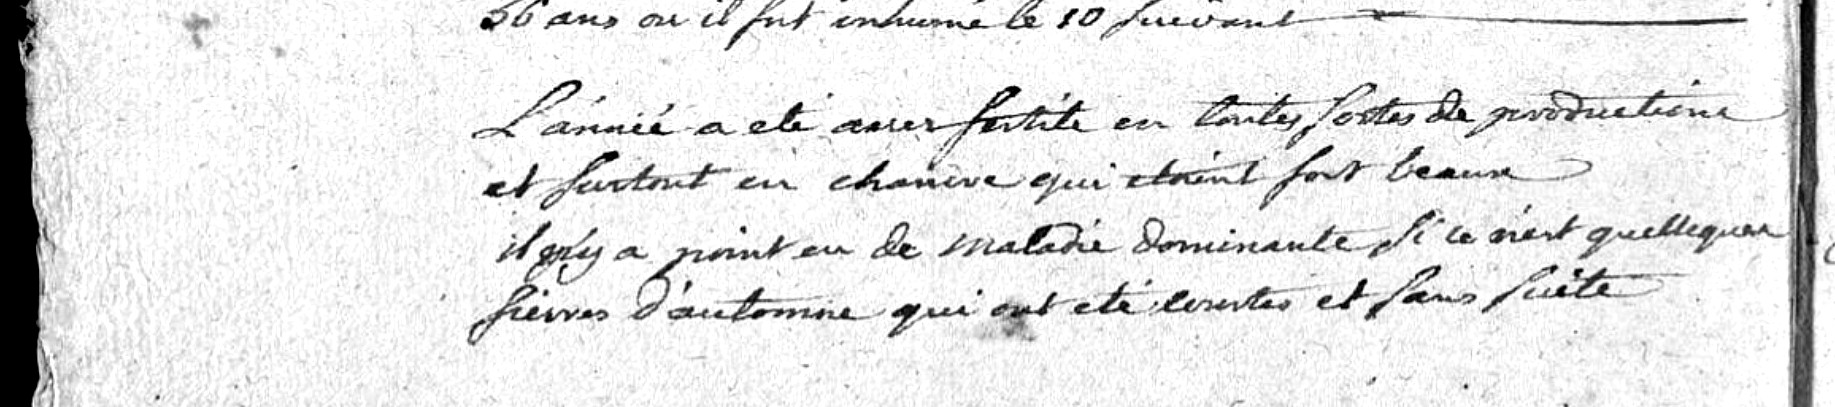 56 ans ou il fut inhumé le 10 suivant
L'année a eté assez fertile en toutes sortes de productions
et surtout en chanvre qui etoient fort beaux
il n'y a point eu de maladie dominante si ce n'est quelleques
fievres d'automne qui ont eté courtes et sans suite